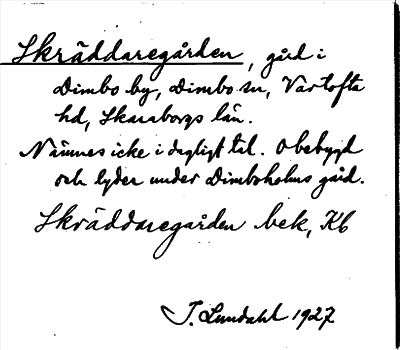 Skräddaregården, gård i
Dimbo by, Dimbo sn, Vartofta
hd, Skaraborgs län.
Nämnes icke i dagligt tal. Obebygd
och lyder under Dimboholms gård.
Skräddaregården bek, Kb
J. Lundahl 1927